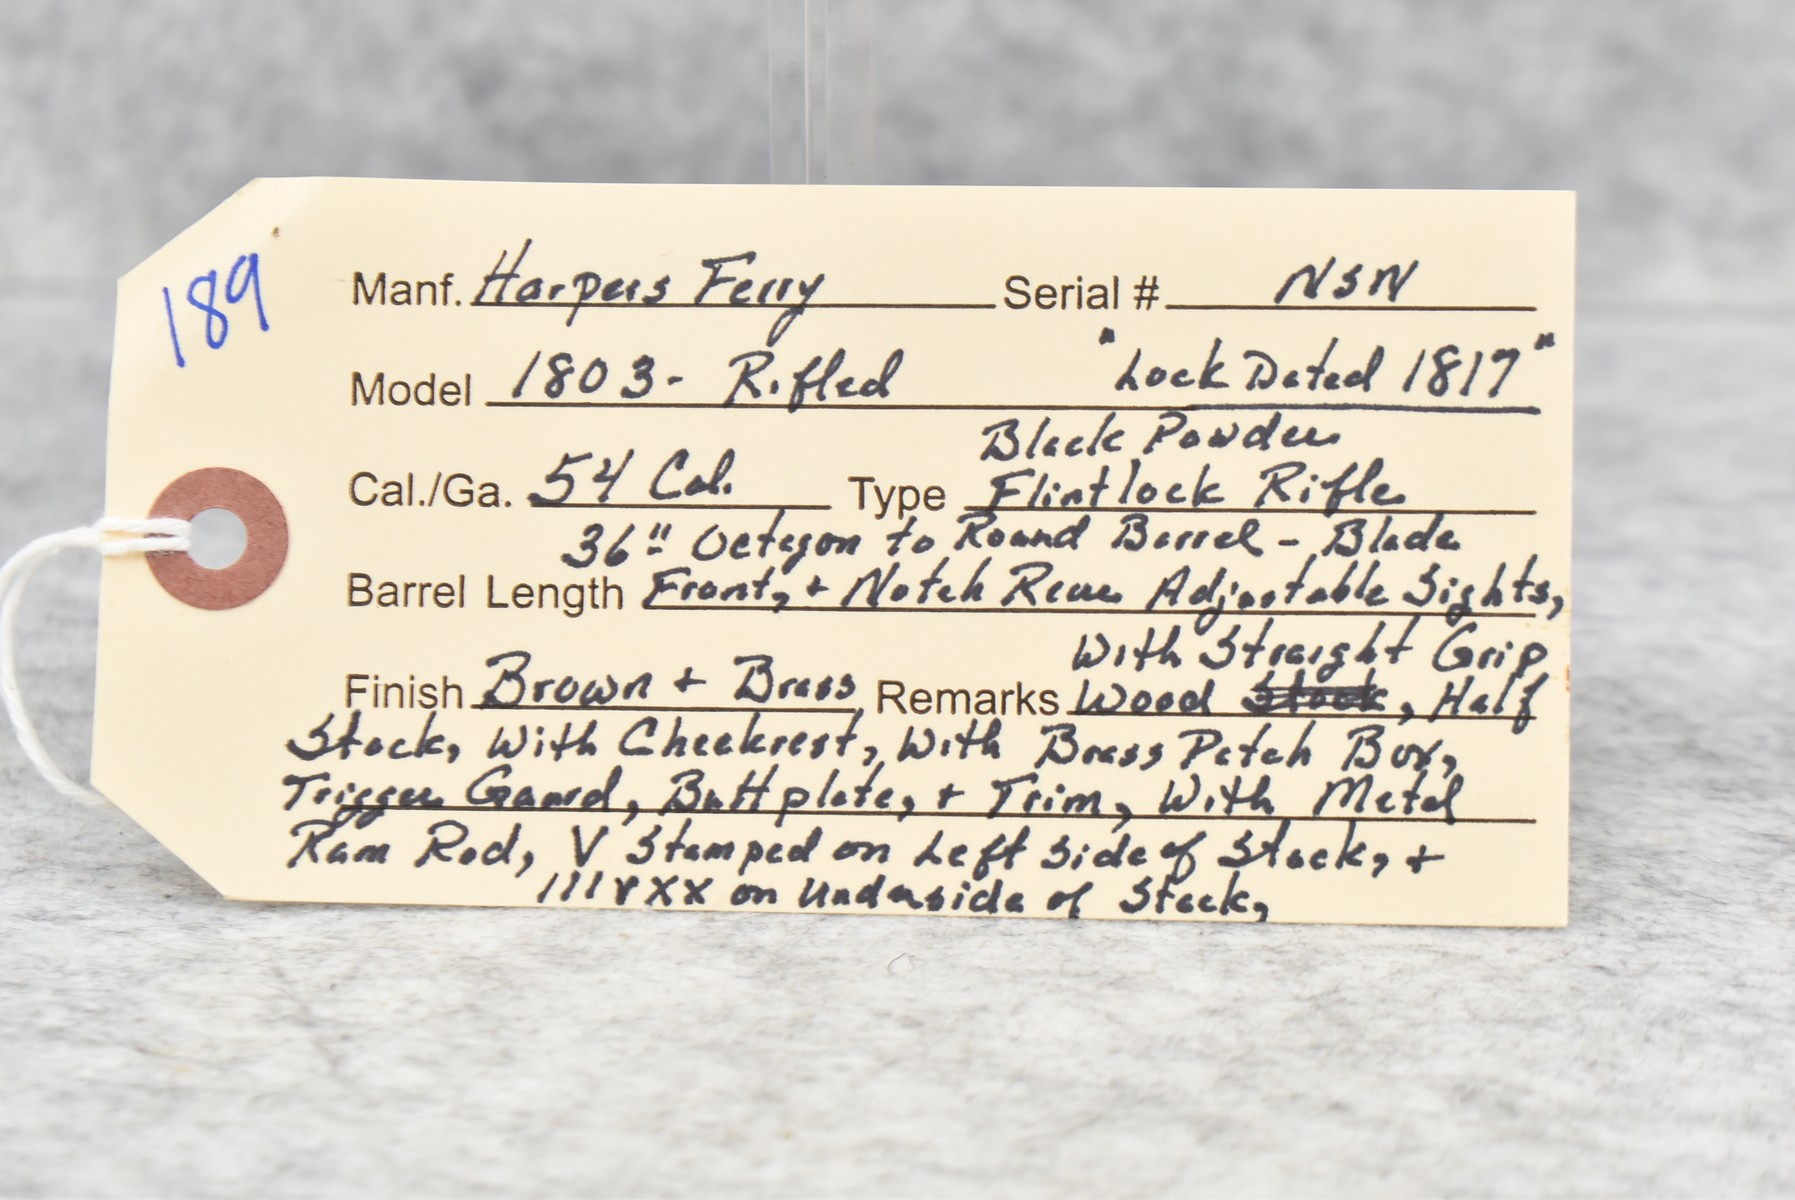 189
Manf. Harpers Ferry Serial # NSN
Model 1803 - Rifled "Lock Dated 1817"
Black Powder
Cal./Ga. 54 Cal. Type Flintlock Rifle
36" Octagon to Round Barrel - Blade
Barrel Length Front, + Notch Rear Adjustable Sights,
With Straight Grip
Finish Brown + Brass Remarks Wood Stock, Half
Stock, With Cheekrest, With Brass Patch Box,
Trigger Guard, Buttplate, + Trim, With Metal
Ram Rod, V Stamped on Left Side of Stock, +
IIIVXX on Underside of Stock,